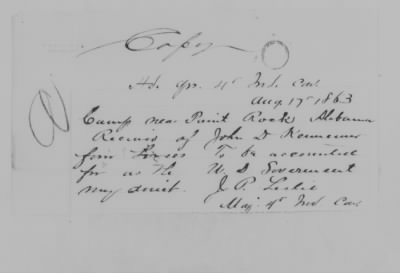 Copy
Hd. Qrs. 4th Ind. Cav
Aug. 17th 1863
Camp near Paint Rock Alabama
Receivd of John D Kennemer
four Horses To be accounted
for as the U. S Goverment
may direct. J. P. Leslie
Maj. 4th Ind Cav